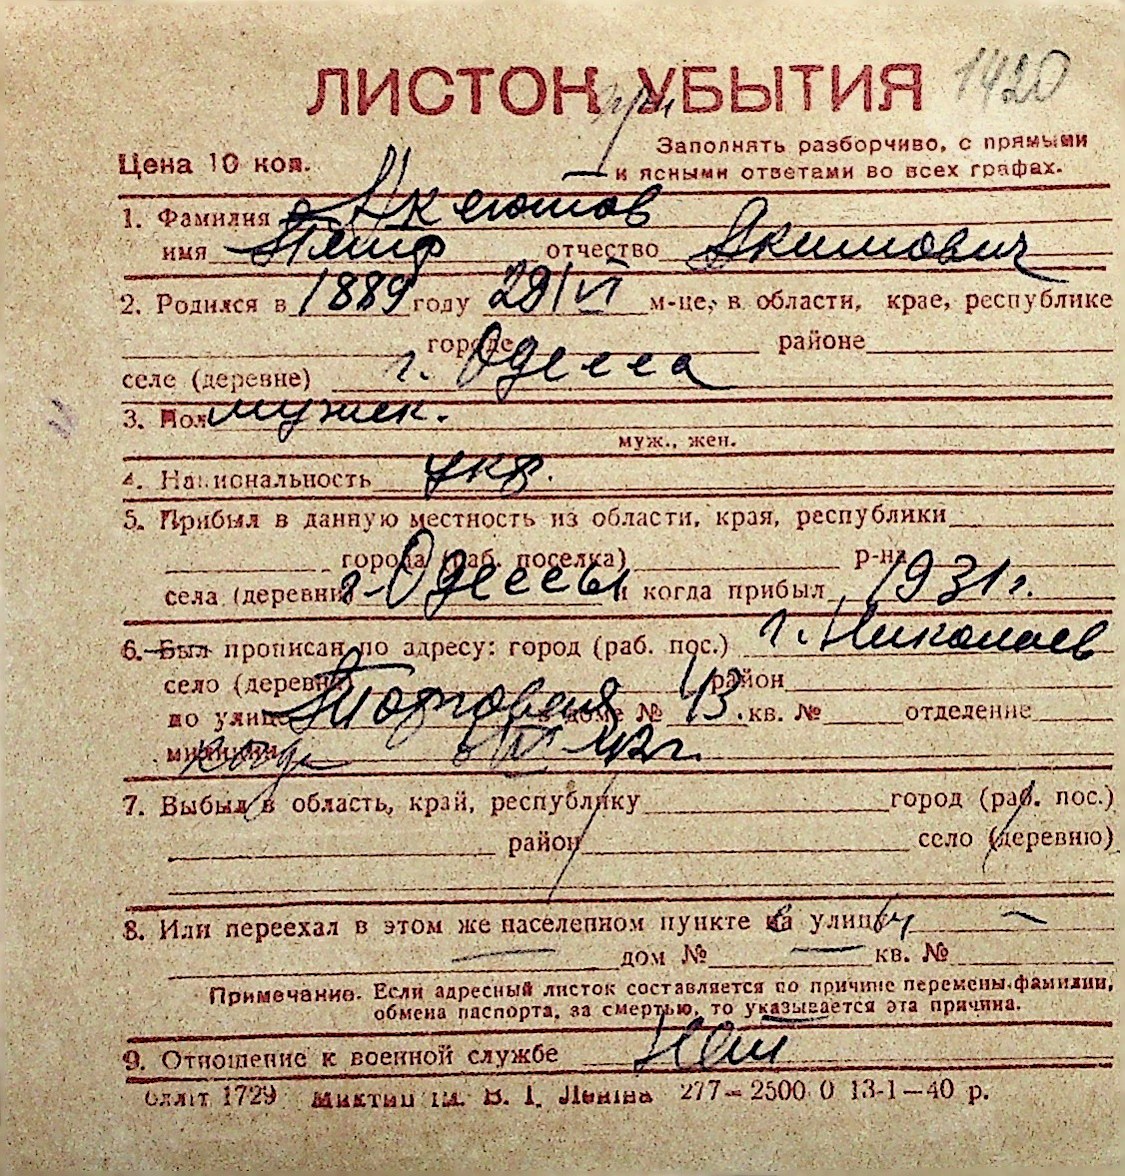 ЛИСТОК УБЫТИЯ 1420
Цена 10 коп. Заполнять разборчиво, с прямыми
и ясными ответами во всех графах.
1. Фамилия Аксютов
имя Петр отчество Якимович
2. Родился в 1889 году 29/VI м-це, в области, крае, республике
городе районе
селе (деревне) г. Одесса
3. Пол мужск.
муж., жен.
4. Национальность укр.
5. Прибыл в данную местность из области, края, республики
города (раб. поселка) р-на
села (деревни) г. Одессы и когда прибыл 1931 г.
6. Был прописан по адресу: город (раб. пос.) г. Николаев
село (деревня) район
по улице Торговая в доме № 43. кв. № отделение
милиции когда в 42 г.
7. Выбыл в область, край, республику город (раб. пос.)
район село (деревню)
8. Или переехал в этом же населенном пункте на улицу —
— дом № — кв. №
Примечание. Если адресный листок составляется по причине перемены фамилии,
обмена паспорта, за смертью, то указывается эта причина.
9. Отношение к военной службе нет
Оллiт 1729 Миктип iм. В. I. Ленiна 277—2500 0 13-1—40 р.